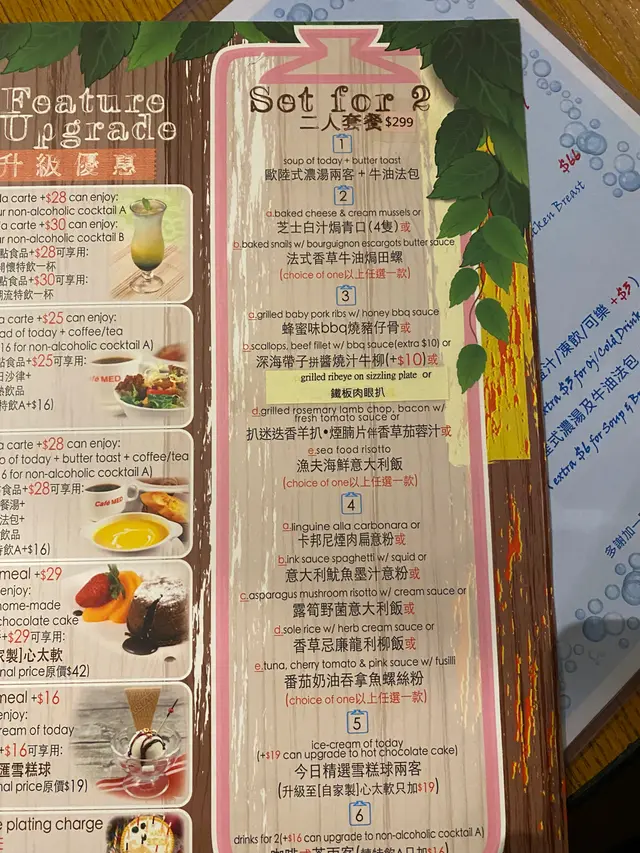 Feature
Upgrade
升級優惠
la carte +$28 can enjoy:
non-alcoholic cocktail A
la carte +$30 can enjoy:
non-alcoholic cocktail B
點食品+$28可享用:
開懷特飲一杯
點食品+$30可享用:
潮流特飲一杯
a carte +$25 can enjoy:
of today + coffee/tea
16 for non-alcoholic cocktail A)
食品+$25可享用:
沙律+
飲品
特飲A+$16)
Café MED
a carte +$28 can enjoy:
of today + butter toast + coffee/tea
6 for non-alcoholic cocktail A)
食品+$28可享用:
餐湯+
法包+
飲品
特飲A+$16)
Café MED
meal +$29
enjoy:
home-made
chocolate cake
+$29可享用:
家製]心太軟
nal price原價$42)
meal +$16
enjoy:
cream of today
+$16可享用:
雪糕球
nal price原價$19)
plating charge
Set for 2
二人套餐$299
1
soup of today + butter toast
歐陸式濃湯兩客 + 牛油法包
2
a.baked cheese & cream mussels or
芝士白汁焗青口(4隻)或
b.baked snails w/ bourguignon escargots butter sauce
法式香草牛油焗田螺
(choice of one以上任選一款)
3
a.grilled baby pork ribs w/ honey bbq sauce
蜂蜜味bbq燒豬仔骨或
b.scallops, beef fillet w/ bbq sauce(extra $10) or
深海帶子拼醬燒汁牛柳(+$10)或
grilled ribeye on sizzling plate or
鐵板肉眼扒
d.grilled rosemary lamb chop, bacon w/
fresh tomato sauce or
扒迷迭香羊扒•煙腩片伴香草茄蓉汁或
e.sea food risotto
漁夫海鮮意大利飯
(choice of one以上任選一款)
4
a.linguine alla carbonara or
卡邦尼煙肉扁意粉或
b.ink sauce spaghetti w/ squid or
意大利魷魚墨汁意粉或
c.asparagus mushroom risotto w/ cream sauce or
露筍野菌意大利飯或
d.sole rice w/ herb cream sauce or
香草忌廉龍利柳飯或
e.tuna, cherry tomato & pink sauce w/ fusilli
番茄奶油吞拿魚螺絲粉
(choice of one以上任選一款)
5
ice-cream of today
(+$19 can upgrade to hot chocolate cake)
今日精選雪糕球兩客
(升級至[自家製]心太軟只加$19)
6
drinks for 2(+$16 can upgrade to non-alcoholic cocktail A)
$66
Chicken Breast
汁/凍飲/可樂 +$3)
extra $3 for oj/Cold Drink
式濃湯及牛油法包
(extra $6 for Soup & B
多謝加一